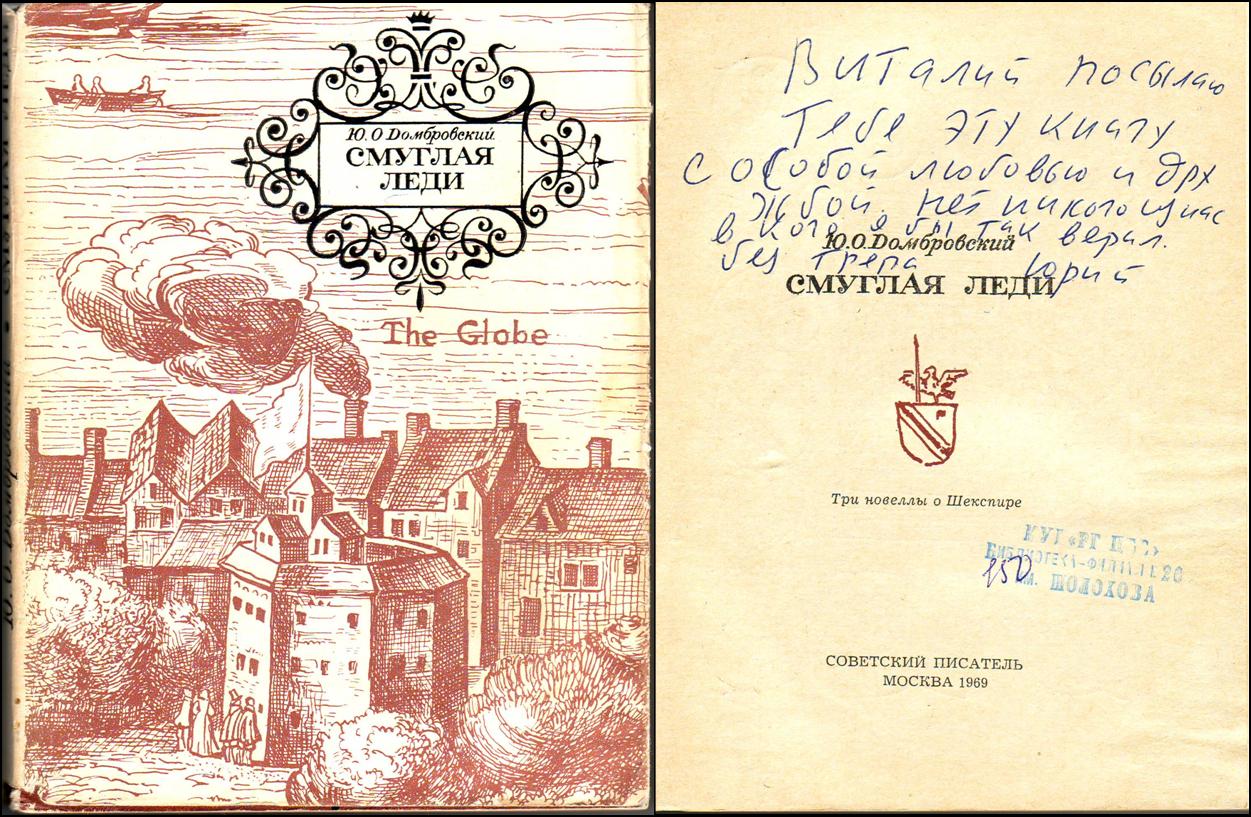 Ю. О. Домбровский
СМУГЛАЯ
ЛЕДИ
The Globe
Виталий посылаю
Тебе эту книгу
с особой любовью и дру
жбой. нет никого из нас
в кого я бы так верил.
без трепа Юрий
Ю. О. Домбровский
СМУГЛАЯ ЛЕДИ
Три новеллы о Шекспире
БИБЛИОТЕКА-ФИЛИАЛ 26
150 им. ШОЛОХОВА
СОВЕТСКИЙ ПИСАТЕЛЬ
МОСКВА 1969